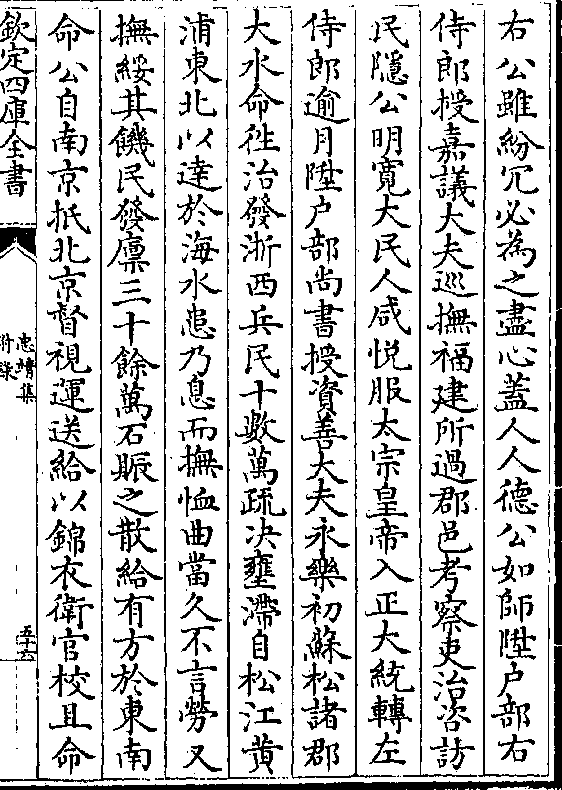 右公雖紛冗必為之盡心蓋人人德公如師陞户部右
侍郎授嘉議大夫巡撫福建所過郡邑考察吏治咨訪
民隱公明寛大民人咸悦服太宗皇帝入正大統轉左
侍郎逾月陞户部尚書授資善大夫永樂初蘇松諸郡
大水命徃治發浙西兵民十數萬疏决壅滯自松江黄
浦東北以達於海水患乃息而撫恤曲當久不言勞又
撫綏其饑民發廪三十餘萬石賑之散給有方於東南
命公自南京抵北京督視運送給以錦衣衛官校且命
欽定四庫全書
忠靖集
附錄
五十六